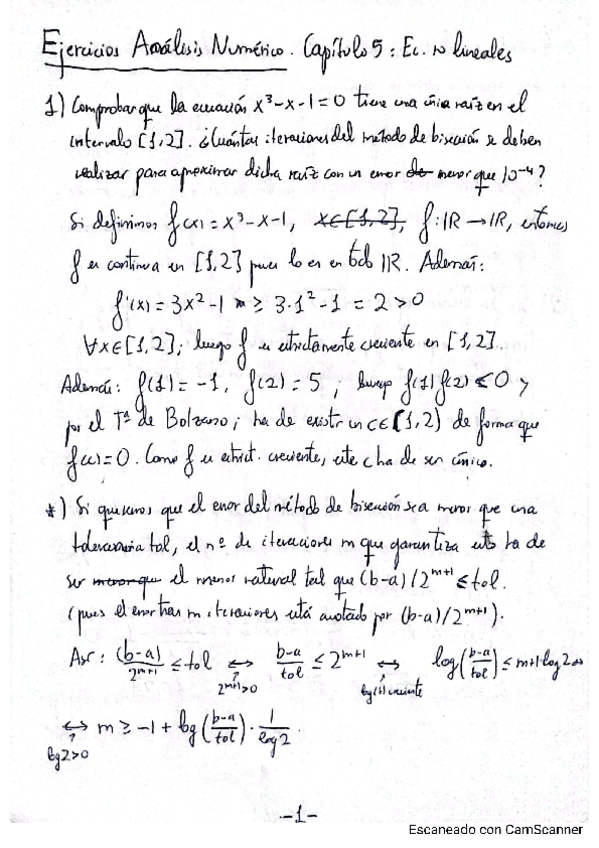 Ejercicios Análisis Numérico. Capítulo 5: Ec. no lineales
1) Comprobar que la ecuación x³-x-1=0 tiene una única raíz en el
intervalo [1,2]. ¿Cuántas iteraciones del método de bisección se deben
realizar para aproximar dicha raíz con un error de menor que 10⁻⁴?
Si definimos f(x)=x³-x-1, x∈[1,2], f:ℝ→ℝ, entonces
f es continua en [1,2] pues lo es en todo ℝ. Además:
f'(x)=3x²-1 ≥ 3·1²-1 = 2 > 0
∀x∈[1,2]; luego f es estrictamente creciente en [1,2].
Además: f(1)=-1, f(2)=5; luego f(1)f(2)<0 y
por el Tª de Bolzano; ha de existir un c∈(1,2) de forma que
f(c)=0. Como f es estrict. creciente, este c ha de ser único.
*) Si queremos que el error del método de bisección sea menor que una
tolerancia tol, el nº de iteraciones m que garantiza esto ha de
ser menor que el menor natural tal que (b-a)/2^{m+1} ≤ tol.
(pues el error tras m iteraciones está acotado por (b-a)/2^{m+1}).
Así: (b-a)/2^{m+1} ≤ tol ⟷ (b-a)/tol ≤ 2^{m+1} ⟷ log((b-a)/tol) ≤ m+1·log2
2^{m+1}>0 log(x) creciente
⟷ m ≥ -1 + log((b-a)/tol)·1/log2
log2>0
-1-
Escaneado con CamScanner